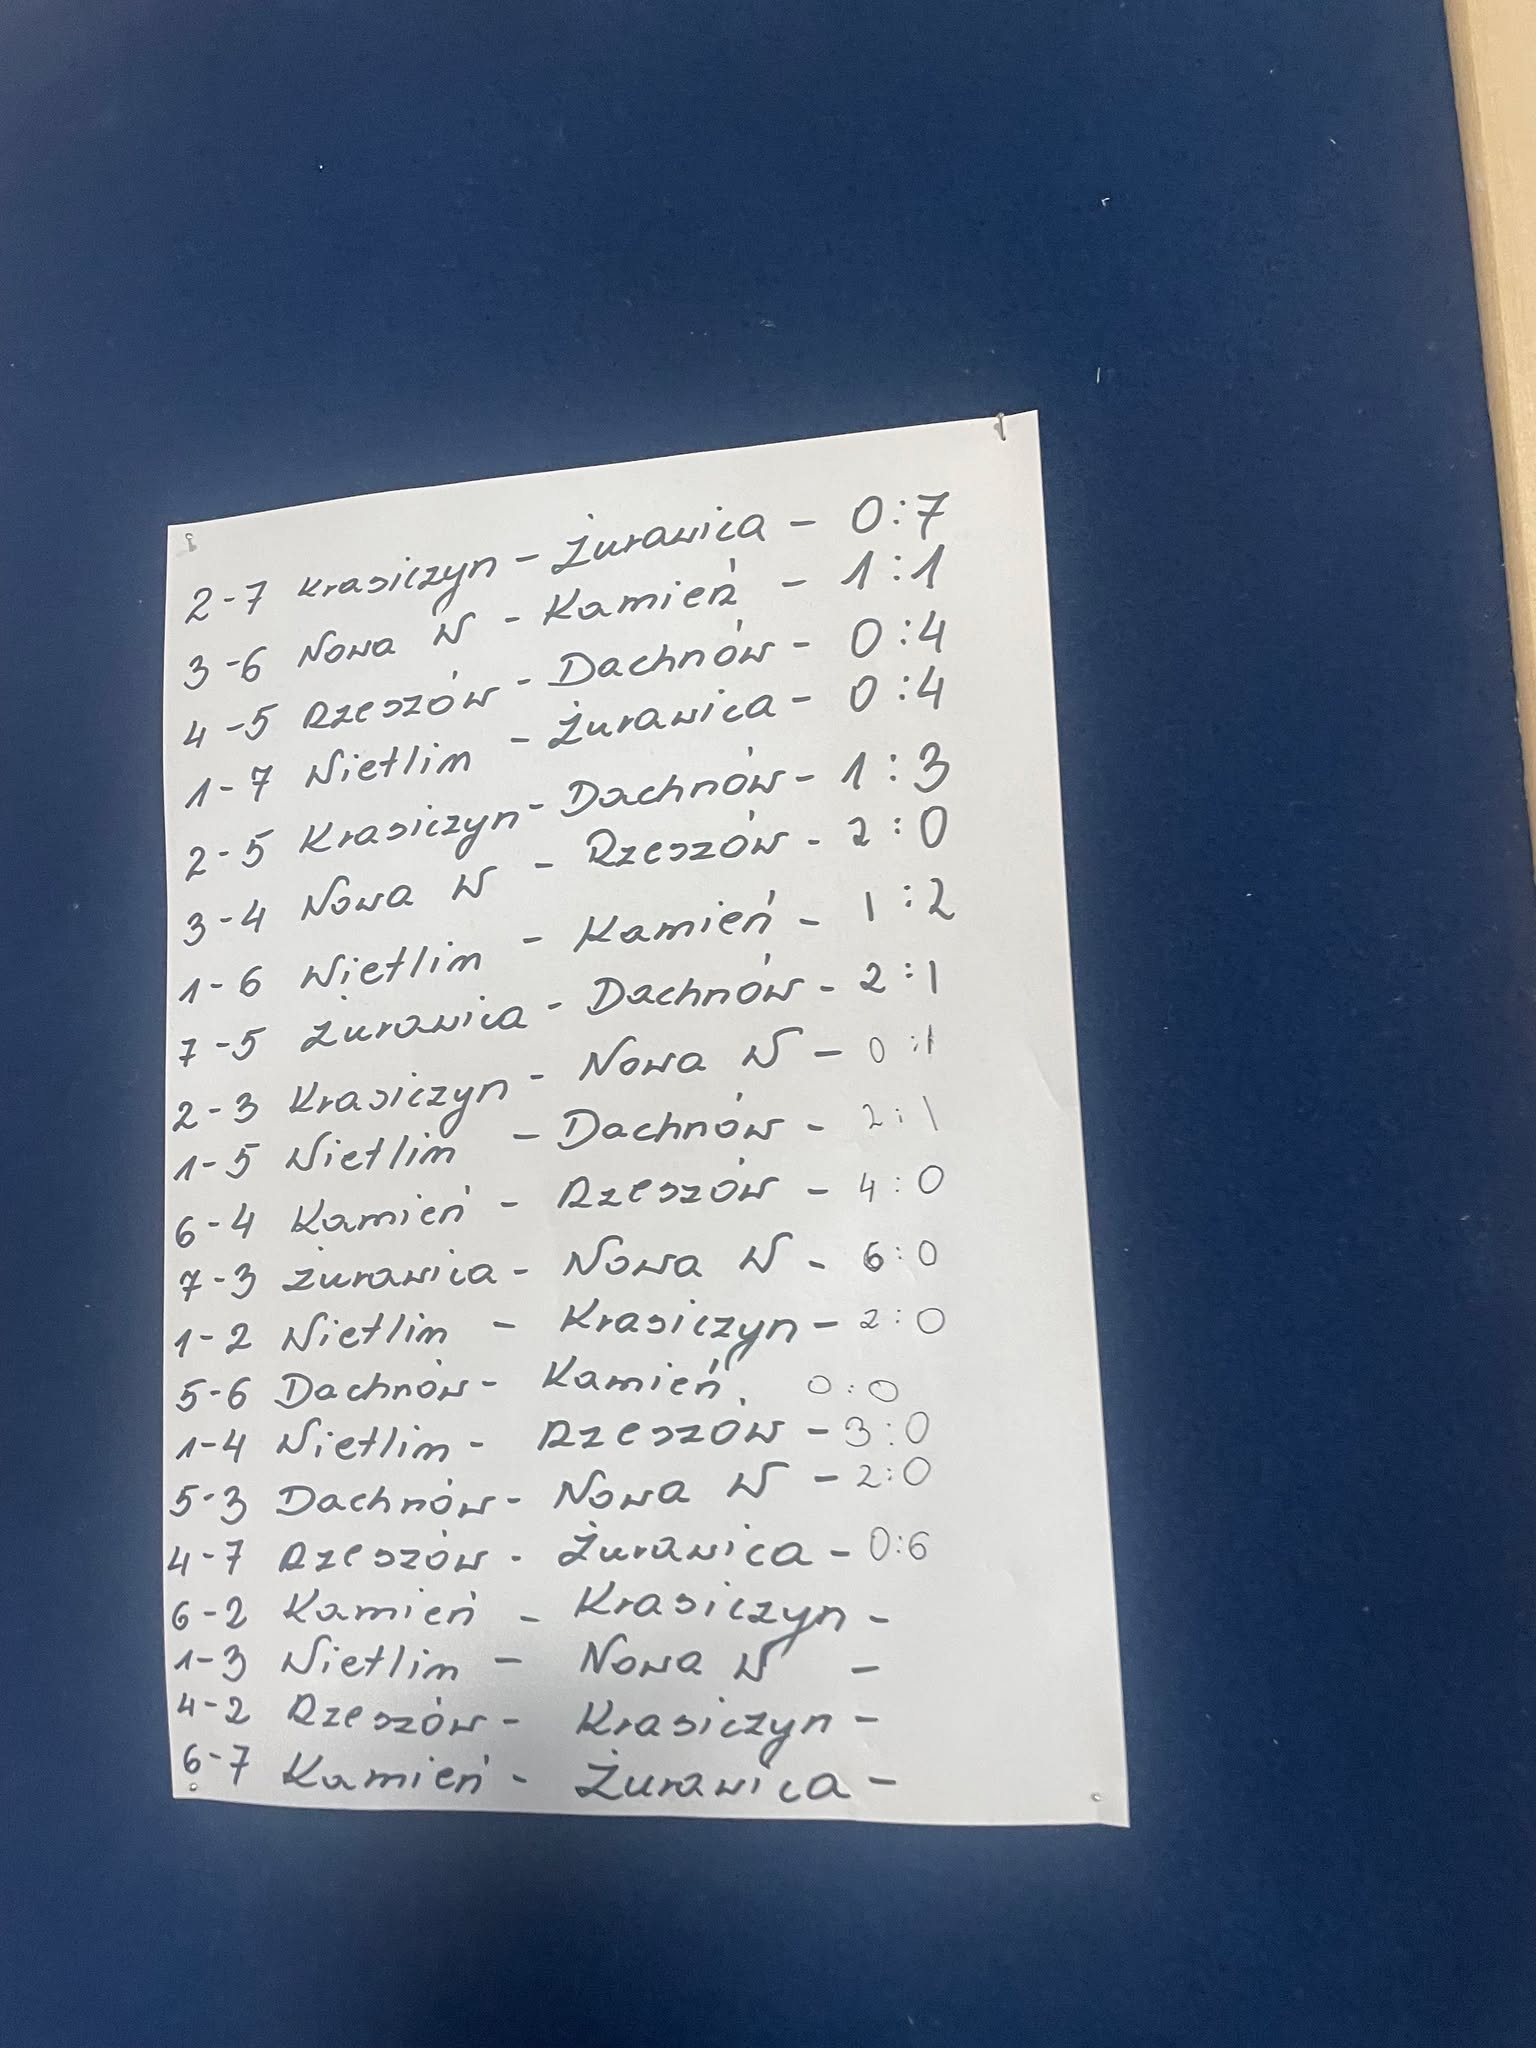 2-7 Krasiczyn - Żurawica - 0:7
3-6 Nowa W - Kamień - 1:1
4-5 Rzeszów - Dachnów - 0:4
1-7 Nietlim - Żurawica - 0:4
2-5 Krasiczyn - Dachnów - 1:3
3-4 Nowa W - Rzeszów - 2:0
1-6 Nietlim - Kamień - 1:2
7-5 Żurawica - Dachnów - 2:1
2-3 Krasiczyn - Nowa W - 0:1
1-5 Nietlim - Dachnów - 2:1
6-4 Kamień - Rzeszów - 4:0
7-3 Żurawica - Nowa W - 6:0
1-2 Nietlim - Krasiczyn - 2:0
5-6 Dachnów - Kamień. 0:0
1-4 Nietlim - Rzeszów - 3:0
5-3 Dachnów - Nowa W - 2:0
4-7 Rzeszów - Żurawica - 0:6
6-2 Kamień - Krasiczyn -
1-3 Nietlim - Nowa W -
4-2 Rzeszów - Krasiczyn -
6-7 Kamień - Żurawica -